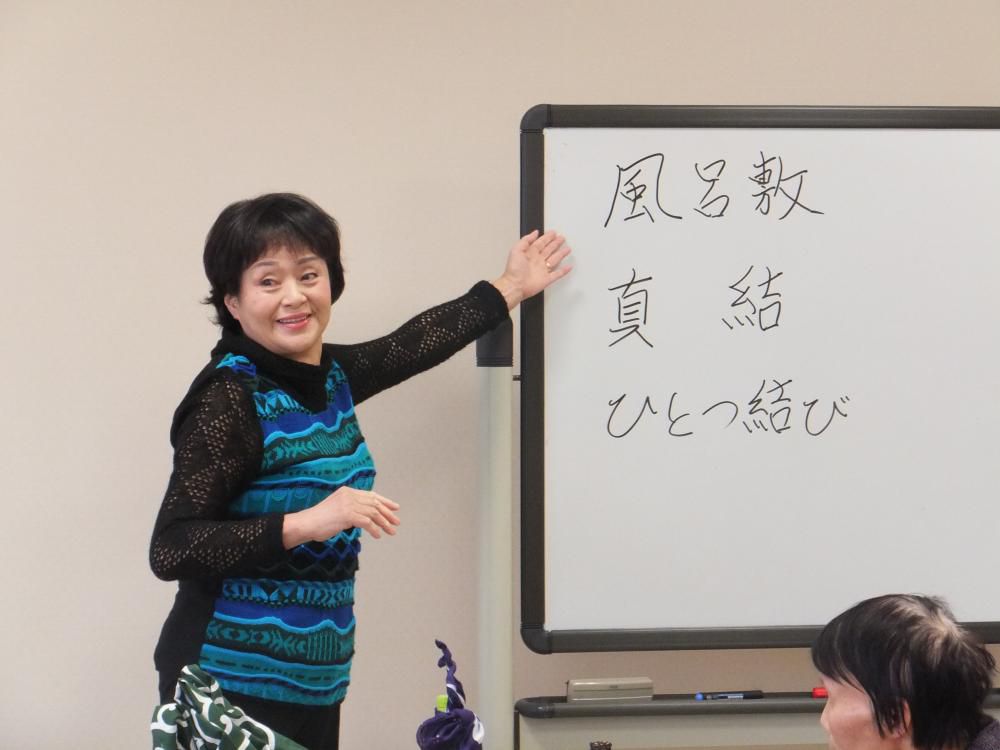 風呂敷
真結
ひとつ結び